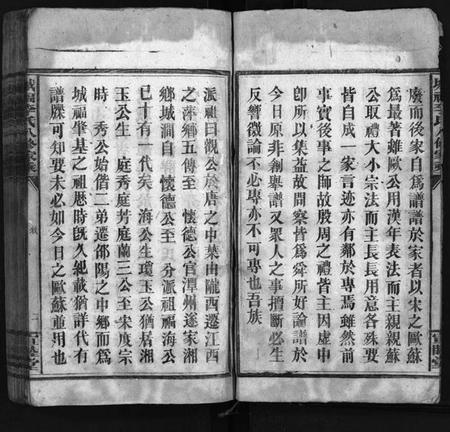 廣而後家自為譜譜於家者以宋之歐蘇
為最著雖歐公用漢年表法而主親親蘇
公取禮大小宗法而主長長用意各殊要
皆自成一家言迹亦有鄰於專焉雖然前
事實後事之師故殷周之禮皆主因虞中
即所以集益故聞察皆為舜所好論譜於
今日原非創舉譜又眾人之事擅斷必生
反響徵論不必專亦不可專也吾族
派祖曰觀公於唐之中葉由隴西遷江西
之萍鄉五傳至 懷德公官潭州遂家湘
鄉城澗自 懷德公至 分派祖福海公
已十有一代矣 海公生瓊玉公猶居湘
玉公生 庭秀庭芳庭蘭三公至宋度宗
時 秀公始偕二弟遷邵陽之中鄉而為
城福肇基之祖懸時既久紀載猶詳代有
譜牒可知要未必如今日之歐蘇並用也